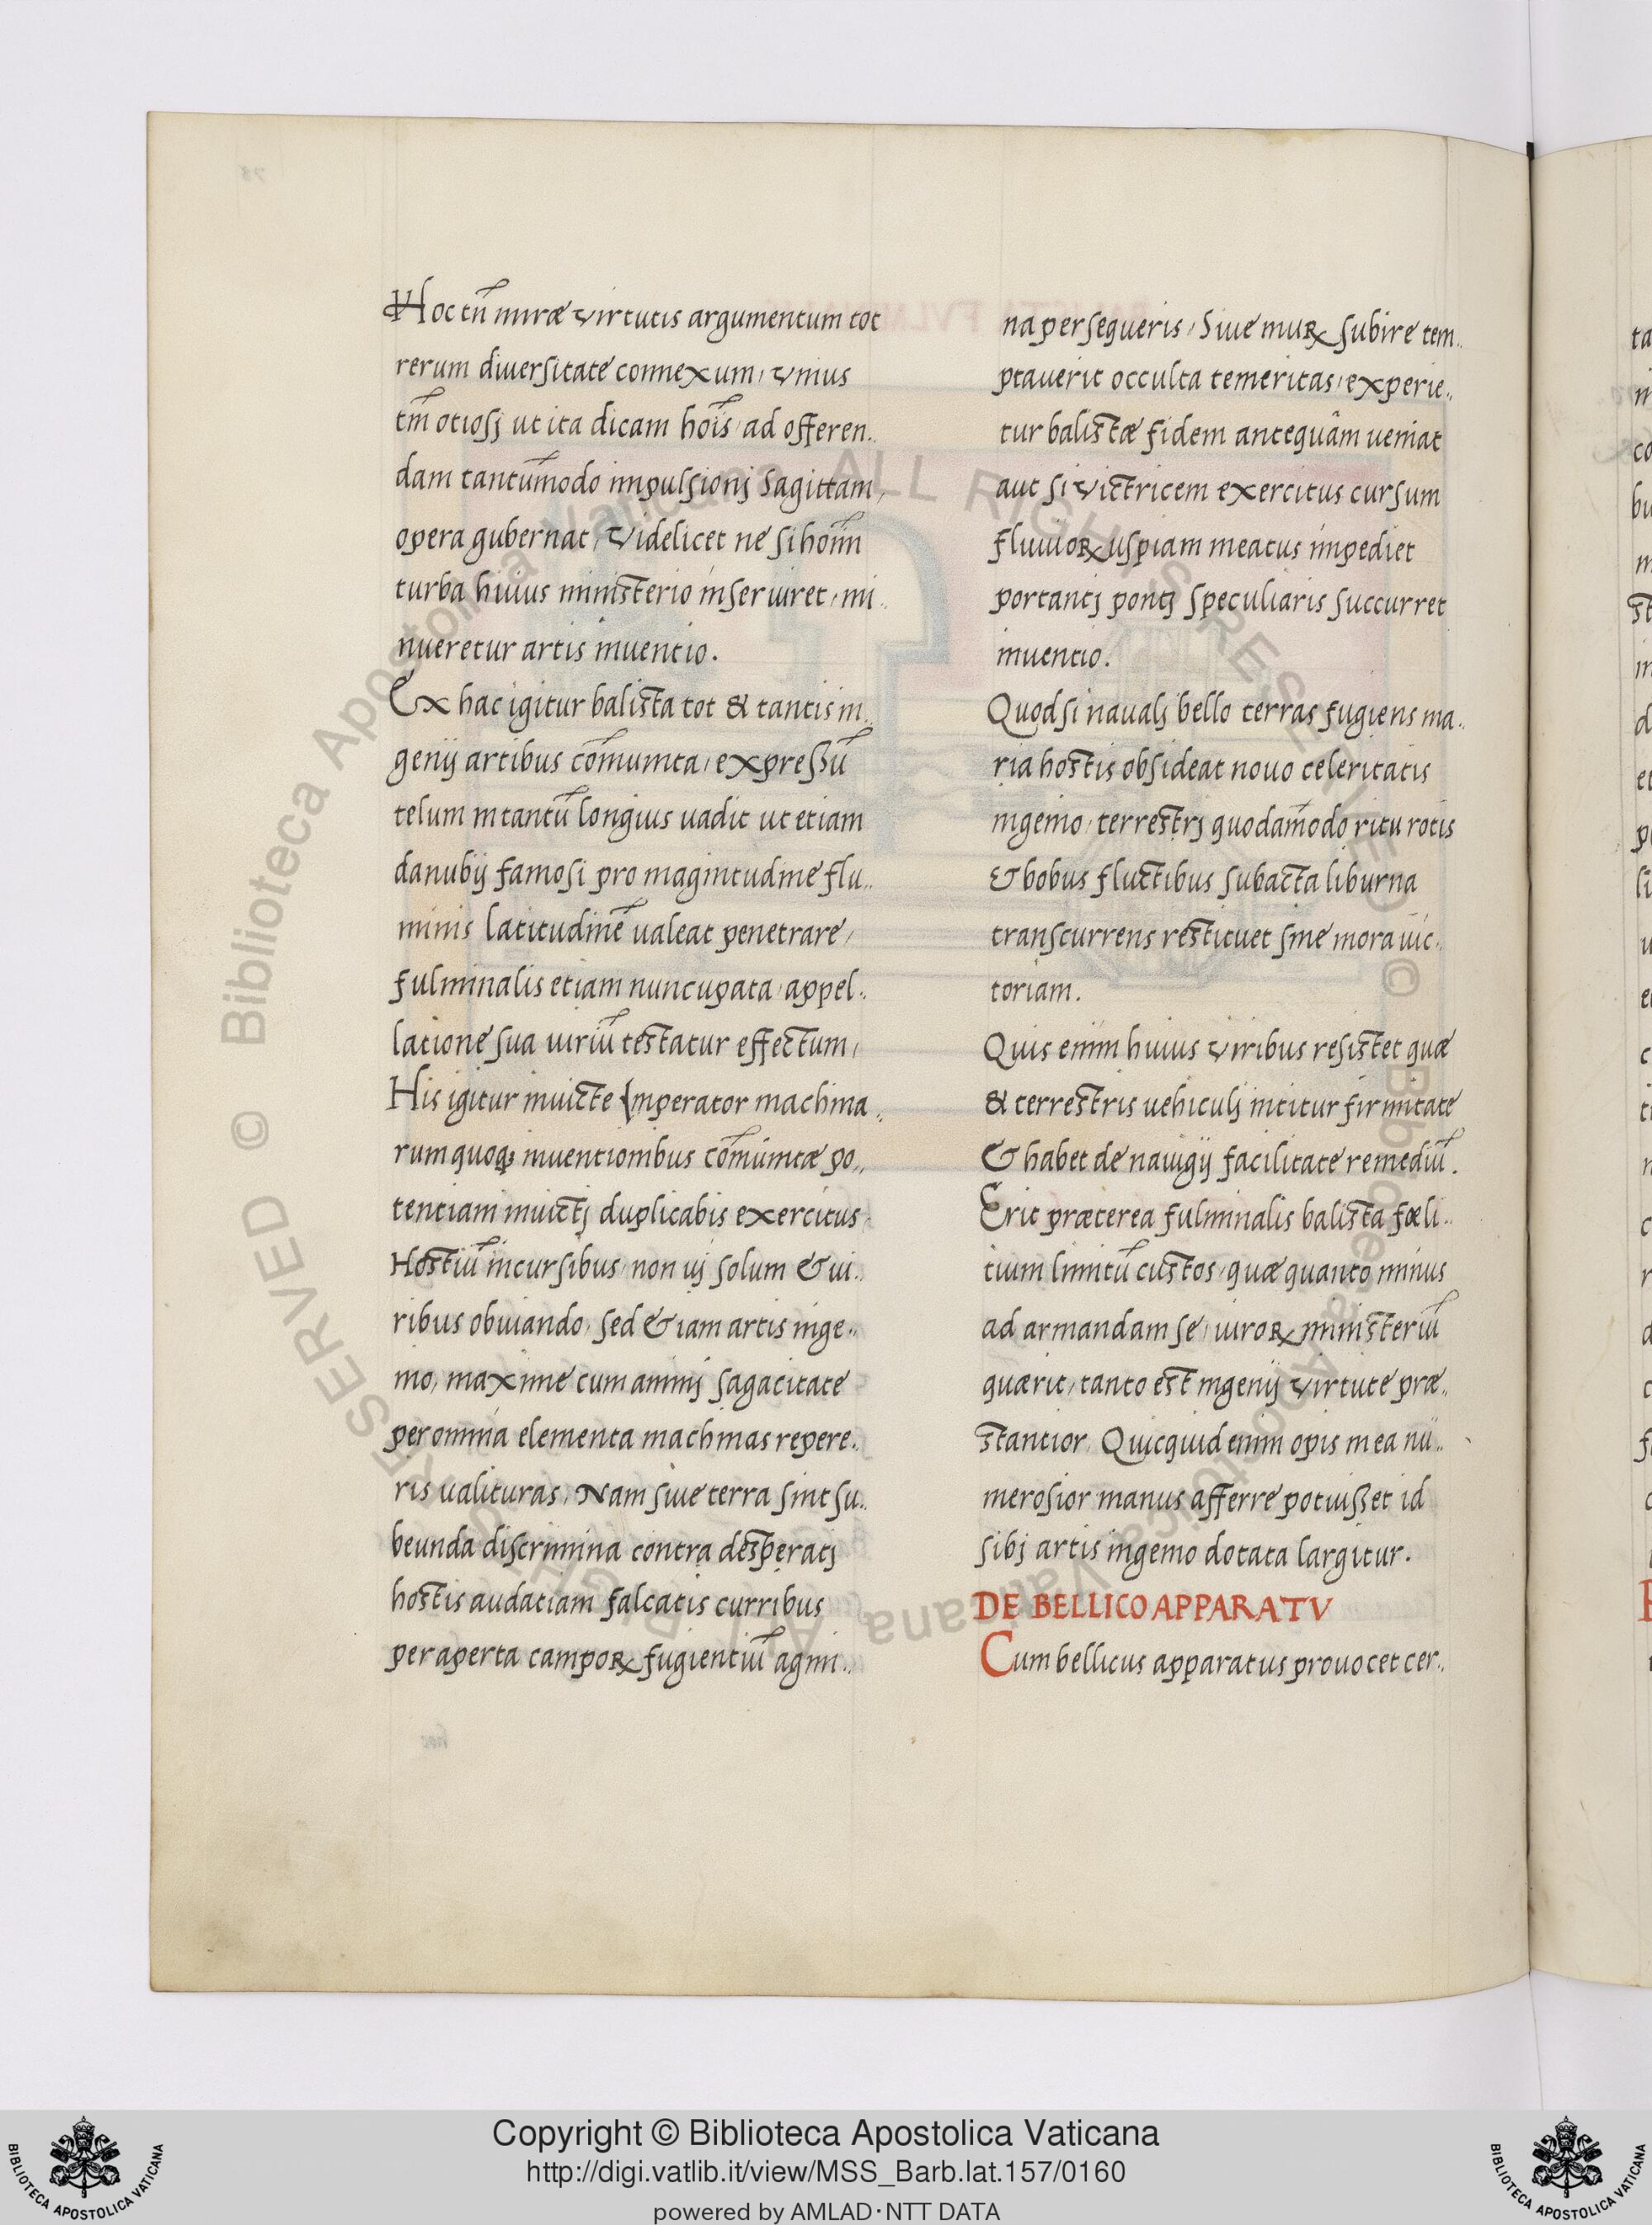 Hoc tn̄ miræ virtutis argumentum tot
rerum diuersitate connexum, vnius
tm̄ otiosj ut ita dicam hoīs ad offeren..
dam tantum̄odo impulsionj Sagittam,
opera gubernat, Videlicet ne si hoīm
turba huius ministerio inseruiret, mi..
nueretur artis inuentio.
Ex hac igitur balista tot & tantis in..
genij artibus com̄unita, expressū
telum intantū longius uadit ut etiam
danubij famosi pro magnitudine flu..
minis latitudinē ualeat penetrare,
fulminalis etiam nuncupata appel..
latione sua uiriū testatur effectum,
His igitur inuicte Imperator machina..
rum quoqꝫ inuentionibus com̄unitæ po..
tentiam inuictj duplicabis exercitus,
Hostiū incursibus non ijs solum & ui..
ribus obuiando, sed & iam artis inge..
nio, maxime cum animj sagacitate
per omnia elementa machinas repere..
ris ualituras, Nam siue terra sint su..
beunda discrimina contra desperatj
hostis audatiam falcatis curribus
per aperta campoꝝ fugientiū agmi..
na persequeris, Siue muꝝ subire tem..
ptauerit occulta temeritas, experie..
tur balistæ fidem antequâm ueniat
aut si victricem exercitus cursum
fluuioꝝ uspiam meatus impediet
portantj pontj speculiaris succurret
inuentio.
Quod si naualj bello terras fugiens ma..
ria hostis obsideat nouo celeritatis
ingenio, terrestrj quodam̄odo ritu rotis
& bobus fluctibus subacta liburna
transcurrens restituet sine mora uic..
toriam.
Quis enim huius viribus resistet quæ
& terrestris uehiculj nititur firmitate
& habet de nauigij facilitate remediū.
Erit præterea fulminalis balista fœli..
tium limitū custos, quæ quanto minus
ad armandam se, uiroꝝ ministeriū
quærit, tanto est ingenij virtute præ..
stantior. Quicquid enim opis in ea nu..
merosior manus afferre potuisset id
sibj artis ingenio dotata largitur.
DE BELLICO APPARATV
Cum bellicus apparatus prouocet cer..
© Biblioteca Apostolica Vaticana ALL RIGHTS RESERVED © Biblioteca Apostolica Vaticana ALL RIGHTS RESERVED
Copyright © Biblioteca Apostolica Vaticana
http://digi.vatlib.it/view/MSS_Barb.lat.157/0160
powered by AMLAD·NTT DATA
BIBLIOTECA APOSTOLICA VATICANA
BIBLIOTECA APOSTOLICA VATICANA